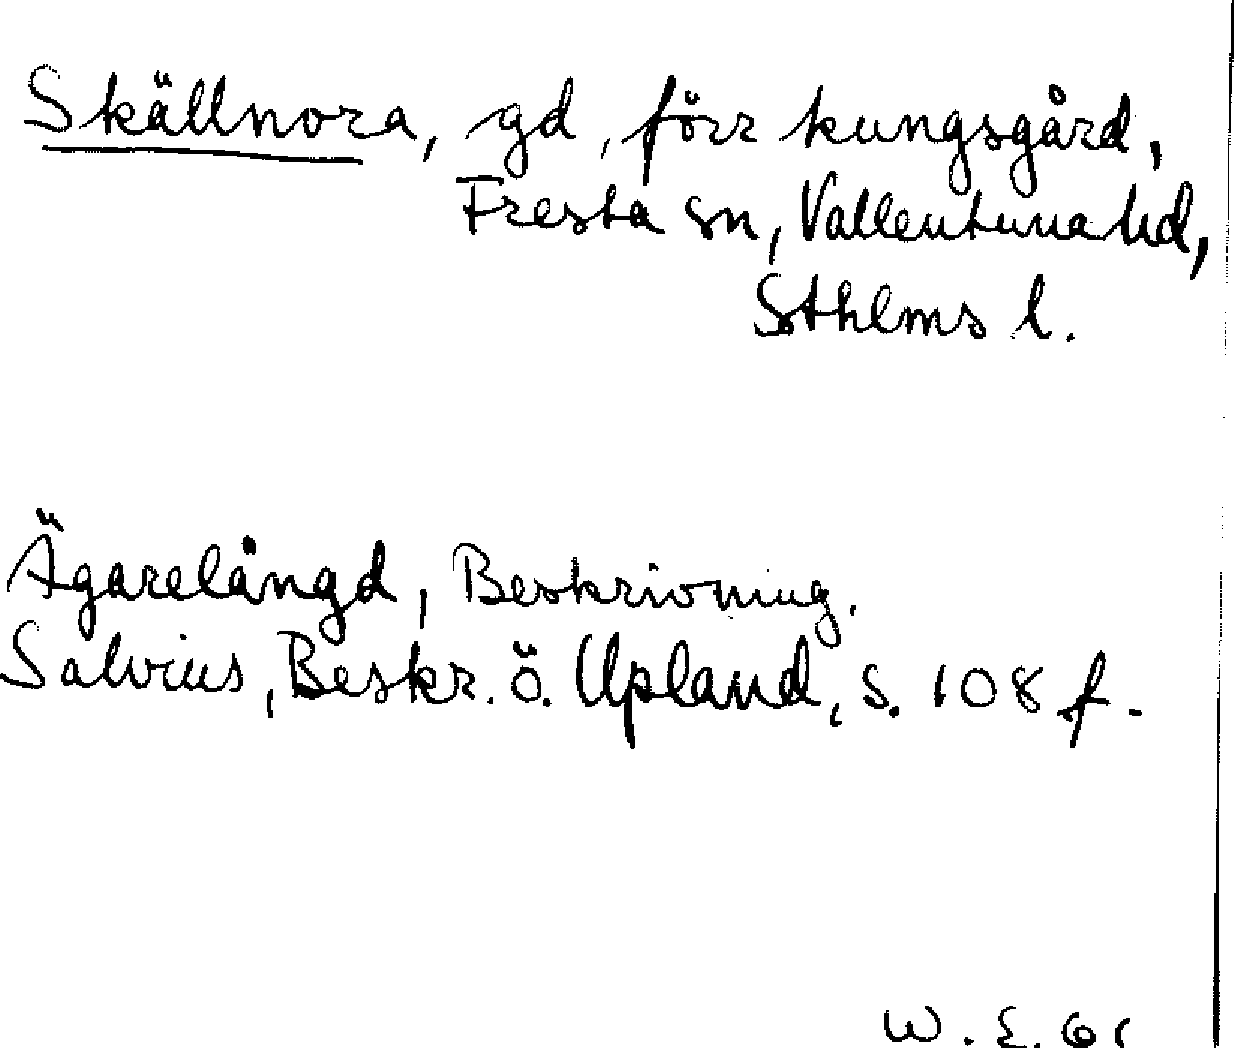 Skällnora, gd, förr kungsgård,
Fresta sn, Vallentuna hd,
Sthlms l.
Ägarelängd, Beskrivning.
Salvius, Beskr. ö. Upland, s. 108 f.
W. E. 61